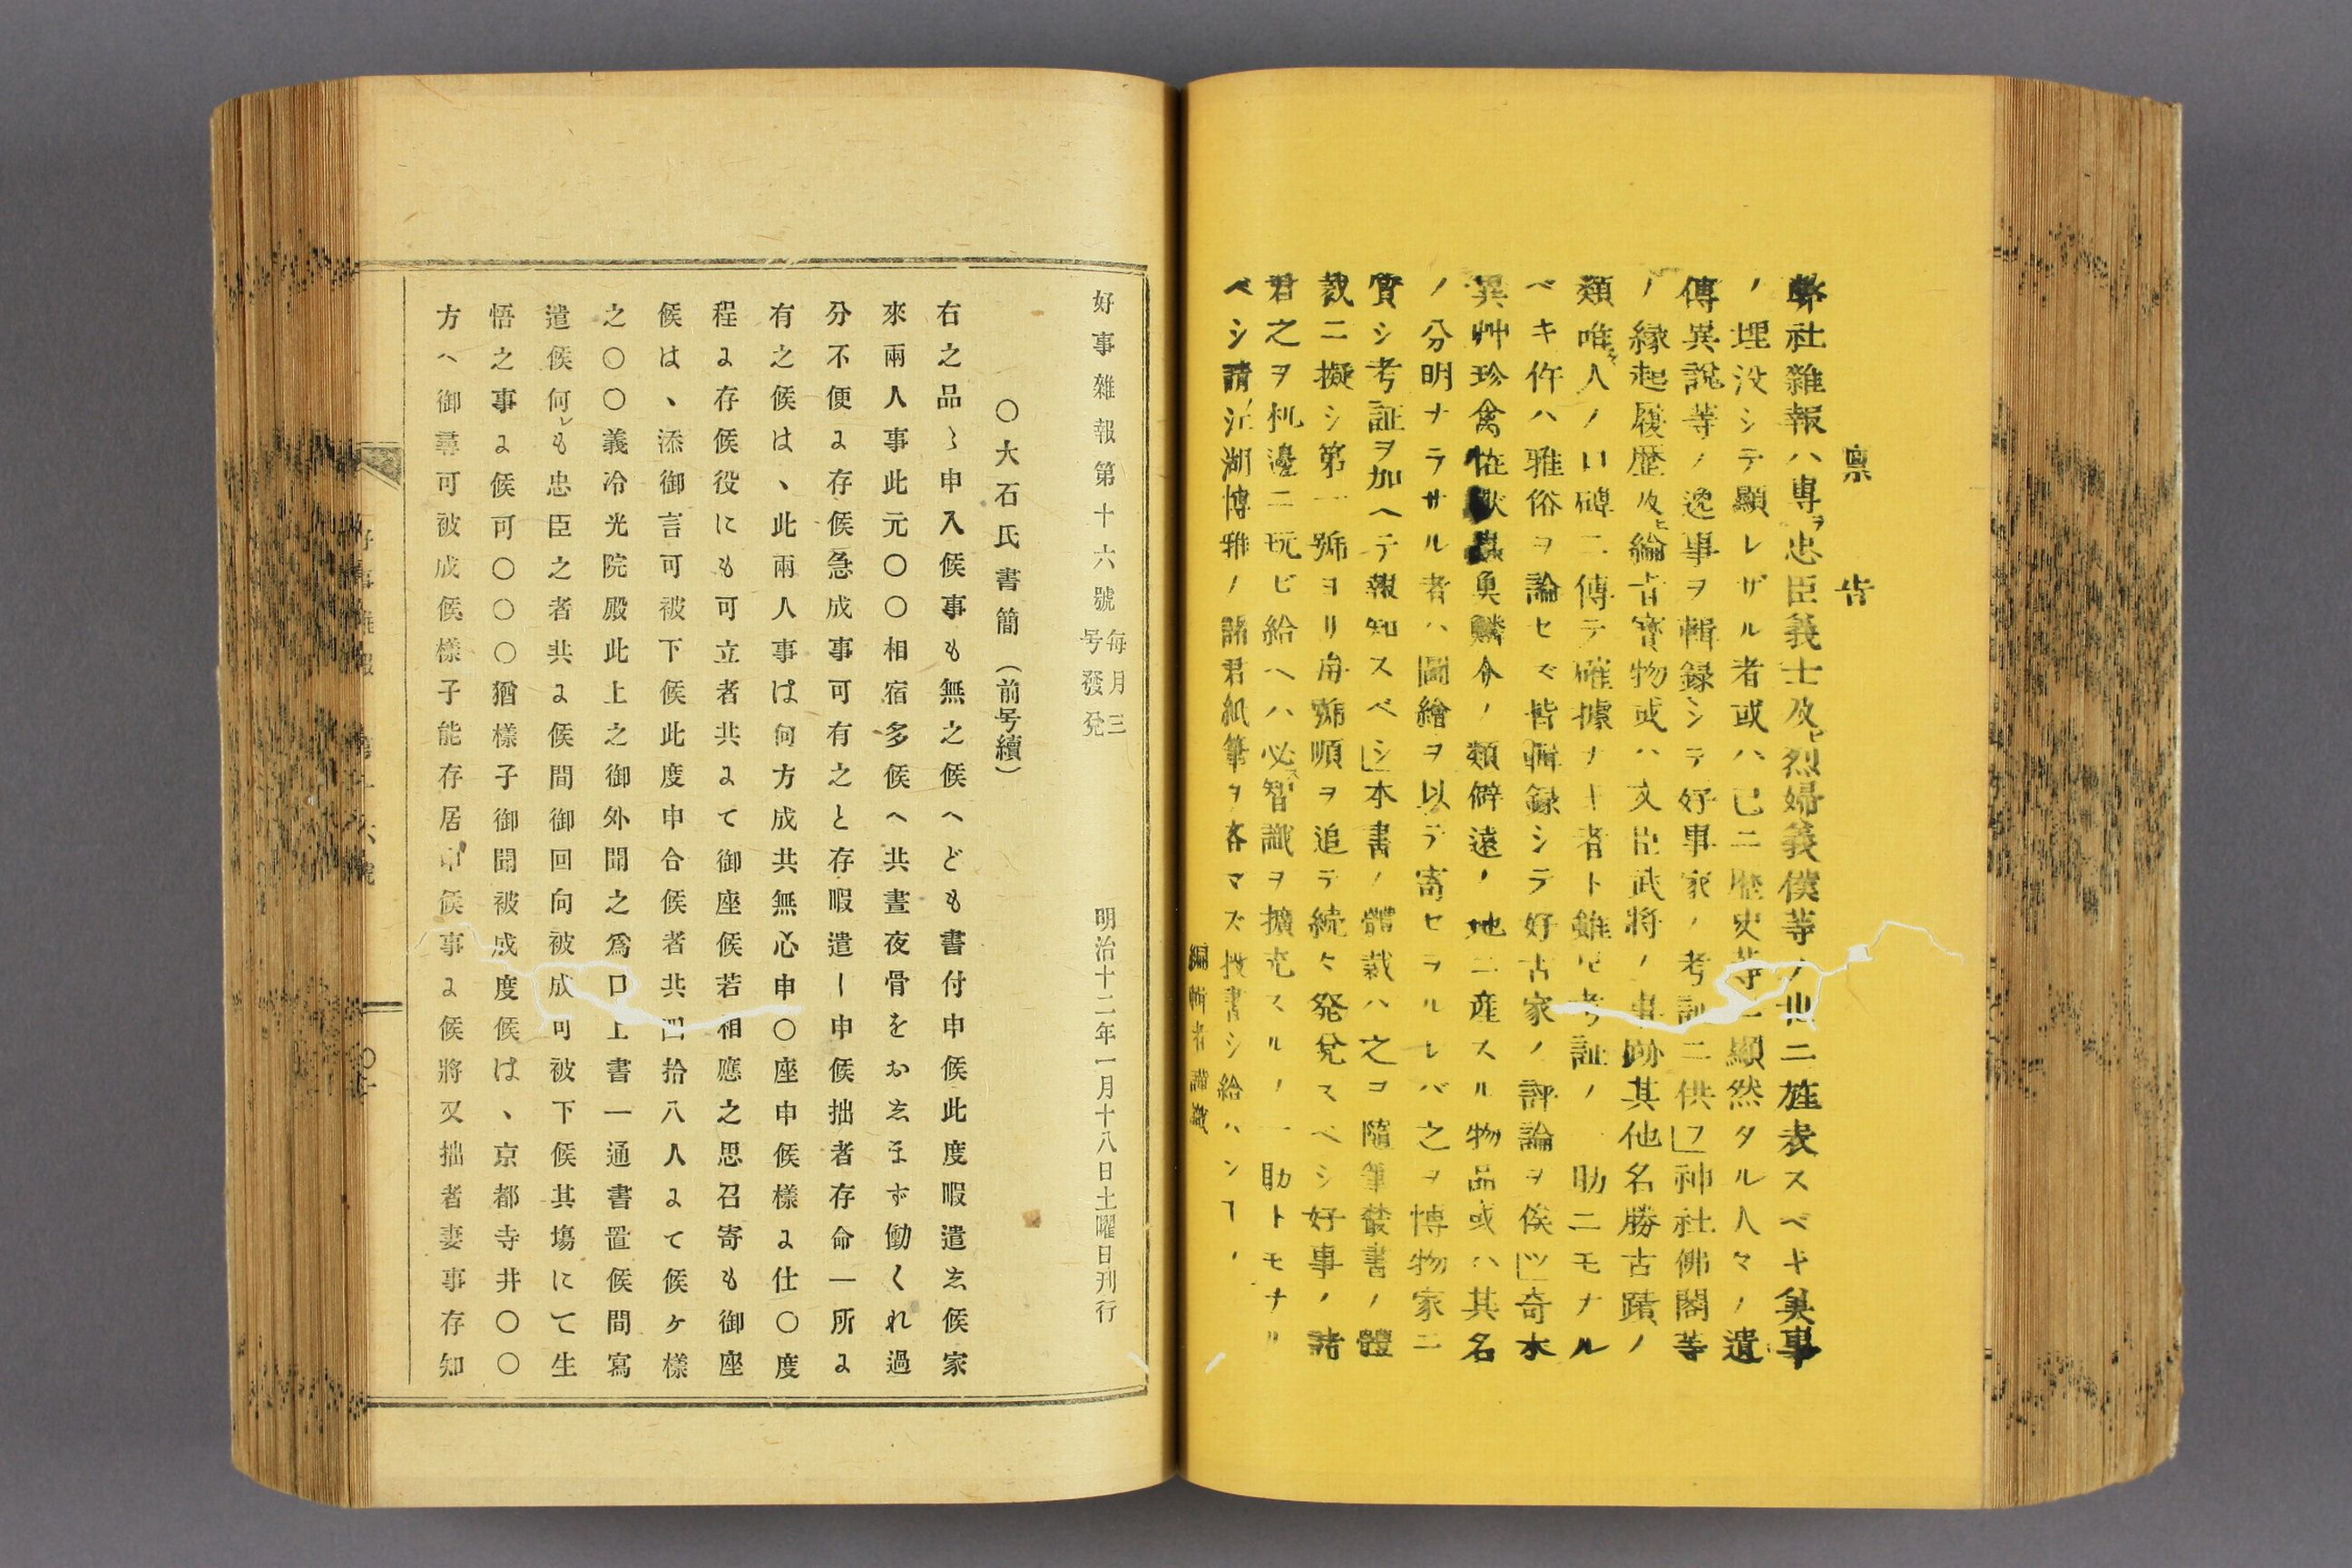 禀告
弊社雜報ハ專ヲ忠臣義士及ヒ烈婦義僕等ノ世ニ旌表スベキ美事
ノ埋没シテ顯レザル者或ハ已ニ歴史等ニ顯然タル人々ノ遺
傳異説等ノ逸事ヲ輯録シテ好事家ノ考証ニ供ヿ神社佛閣等
ノ縁起履歴及ヒ論古寳物或ハ文臣武将ノ事跡其他名勝古蹟ノ
類唯人ノ口碑ニ傳テ確據ナキ者ト雖モ考証ノ一助ニモナル
ベキ件ハ雅俗ヲ論セズ皆輯録シテ好古家ノ評論ヲ俟ツ奇木
異艸珍禽恠獣蟲魚鱗介ノ類僻遠ノ地ニ産スル物品或ハ其名
ノ分明ナラサル者ハ圖繪ヲ以テ寄セラルレバ之ヲ博物家ニ
質シ考証ヲ加ヘテ報知スベシ本書ノ體裁ハ之ヲ隨筆叢書ノ體
裁ニ擬シ第一號ヨリ毎號順ヲ追テ続々発兌スベシ好事ノ諸
君之ヲ机邊ニ玩ビ給ヘハ必智識ヲ擴充スルノ一助トモナル
ベシ請江湖博雅ノ諸君紙筆ヲ吝マズ投書シ給ハンヿヲ
編輯者謹識
好事雜報第十六號 毎月三号發兌 明治十二年一月十八日土曜日刋行
〇大石氏書簡（前号續）
右之品〻申入候事も無之候へども書付申候此度暇遣し候家
來兩人事此元〇〇相宿多候へ共晝夜骨をおしまず働くれ過
分不便に存候急成事可有之と存暇遣し申候拙者存命一所に
有之候は、此兩人事は何方成共無心申〇座申候樣に仕〇度
程に存候役にも可立者共にて御座候若相應之思召寄も御座
候は、添御言可被下候此度申合候者共四拾八人にて候ケ樣
之〇〇義冷光院殿此上之御外聞之爲口上書一通書置候間寫
遣候何レも忠臣之者共に候間御回向被成可被下候其塲にて生
悟之事に候可〇〇〇猶樣子御聞被成度候は、京都寺井〇〇
方へ御尋可被成候樣子能存居申候事に候將又拙者妻事存知
好事雜報 第十六號